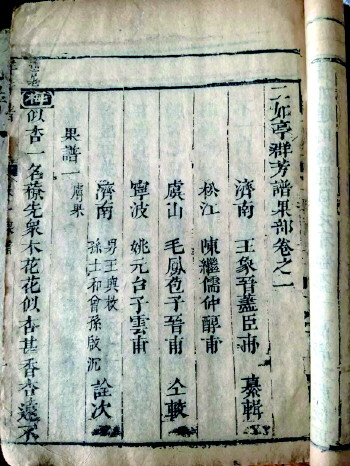 二如亭群芳譜果部卷之一
濟南 王象晉藎臣甫 纂輯
松江 陳繼儒仲醇甫
虞山 毛鳳苞子晉甫 仝較
寧波 姚元台子雲甫
濟南 男王與敕
孫士和曾孫啟汸 詮次
果譜一 膚果
梅 似杏一名𣔰先衆木花花似杏甚香杏遠不